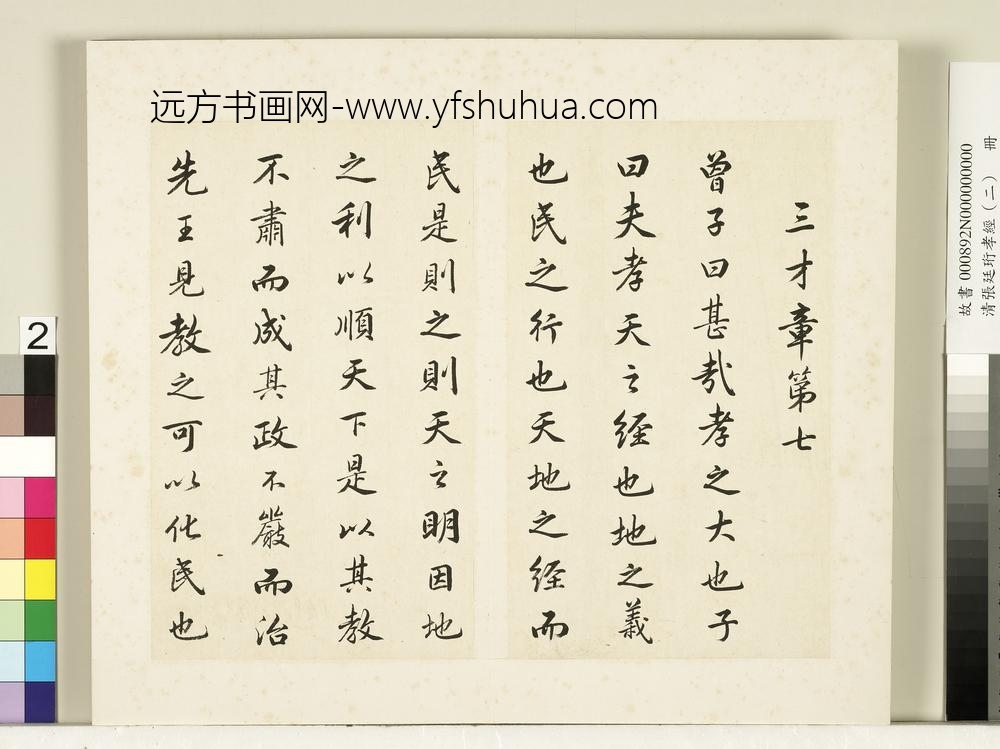 远方书画网-www.yfshuhua.com
三才章第七
曾子曰甚哉孝之大也子
曰夫孝天之經也地之義
也民之行也天地之經而
民是則之則天之明因地
之利以順天下是以其教
不肅而成其政不嚴而治
先王見教之可以化民也
故書000892N000000000
清張廷珩孝經(二) 冊
2